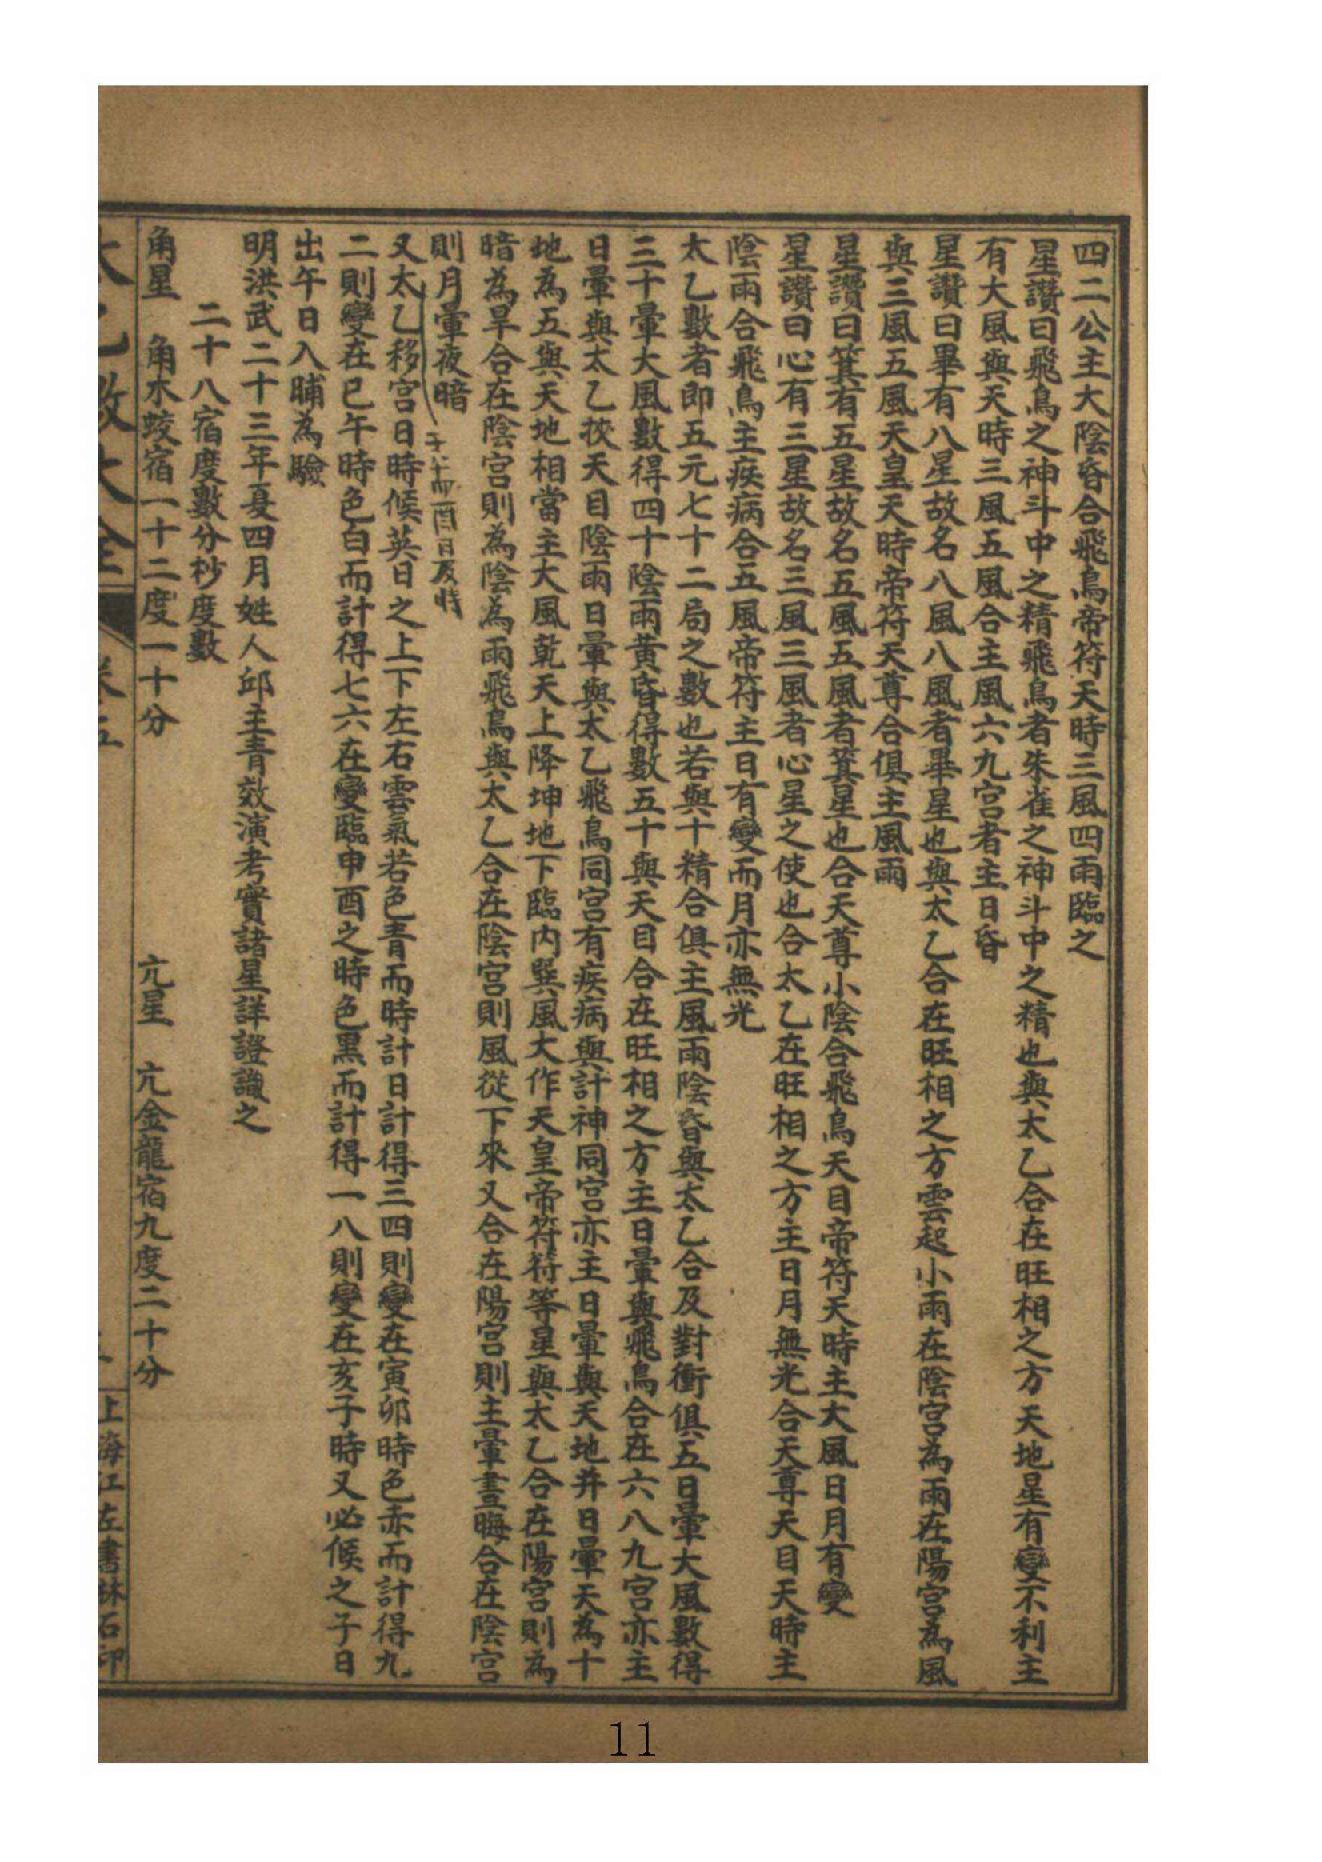 四二公主大陰昏合飛鳥帝符天時三風四雨臨之
星讚曰飛鳥之神斗中之精飛鳥者朱雀之神斗中之精也與太乙合在旺相之方天地星有變不利主
有大風與天時三風五風合主風六九宮者主日昏
星讚曰畢有八星故名八風八風者畢星也與太乙合在旺相之方雲起小雨在陰宮為雨在陽宮為風
與三風五風天皇天時帝符天尊合俱主風雨
星讚曰箕有五星故名五風五風者箕星也合天尊小陰合飛鳥天目帝符天時主大風日月有變
星讚曰心有三星故名三風三風者心星之使也合太乙在旺相之方主日月無光合天尊天目天時主
陰雨合飛鳥主疾病合五風帝符主日有變而月亦無光
太乙數者即五元七十二局之數也若與十精合俱主風雨陰昏與太乙合及對衝俱五日暈大風數得
三十暈大風數得四十陰雨黃昏得數五十與天目合在旺相之方主日暈與飛鳥合在六八九宮亦主
日暈與太乙挾天目陰雨日暈與太乙飛鳥同宮有疾病與計神同宮亦主日暈與天地并日暈天為十
地為五與天地相當主大風乾天上降坤地下臨內巽風大作天皇帝符符等星與太乙合在陽宮則為
暗為旱合在陰宮則為陰為雨飛鳥與太乙合在陰宮則風從下來又合在陽宮則主暈晝晦合在陰宮
則月暈夜暗
酉日及時
又太乙移宮日時候英日之上下左右雲氣若色青而時計日計得三四則變在寅卯時色赤而計得九
二則變在巳午時色白而計得七六在變臨申酉之時色黑而計得一八則變在亥子時又必候之子日
出午日入晡為驗
明洪武二十三年夏四月姓人邱主青效演考實諸星詳證識之
二十八宿度數分杪度數
角星 角木蛟宿一十二度一十分 亢星 亢金龍宿九度二十分
太乙數大全 卷五 上海江左書林石印
11